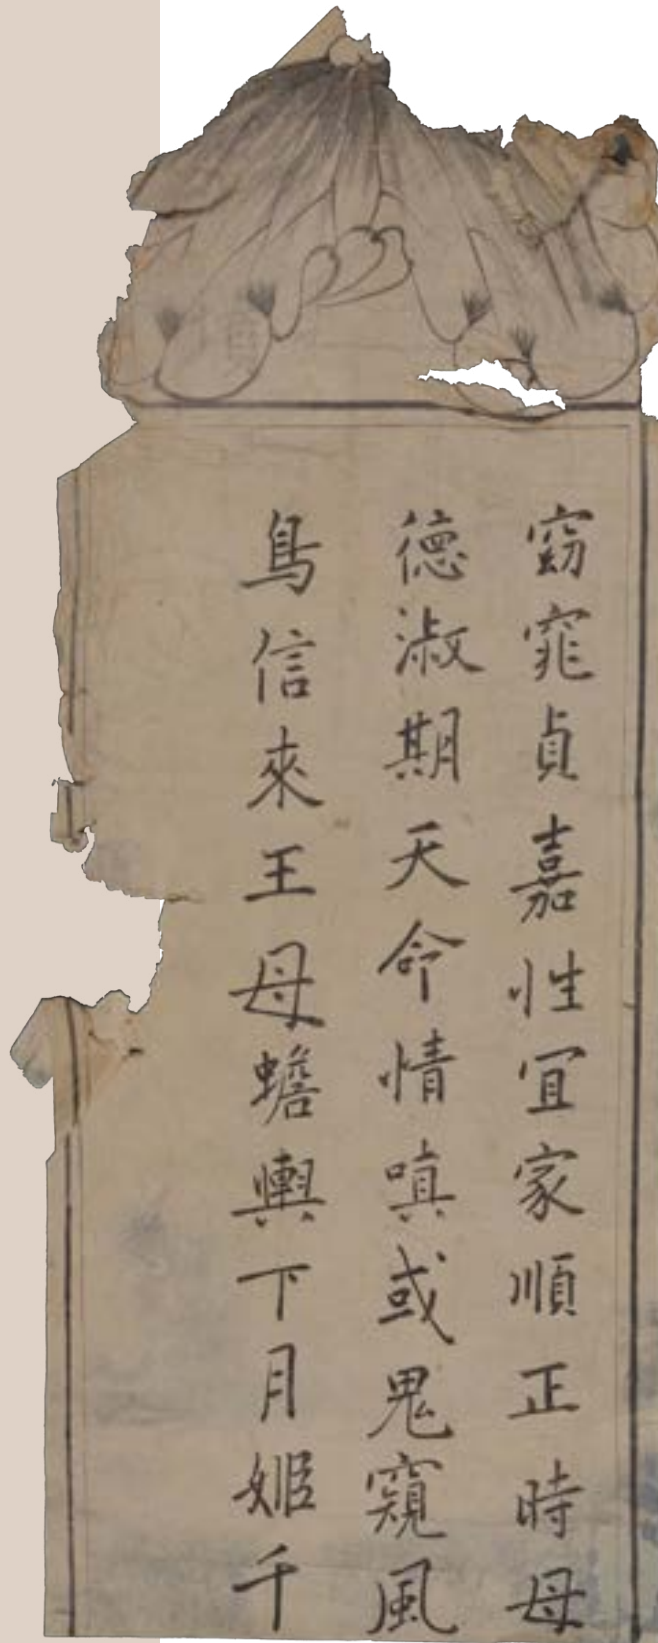 窈窕貞嘉性宜家順正時母
德淑期天命情嗔或鬼窺風
鳥信來王母蟾輿下月姬千